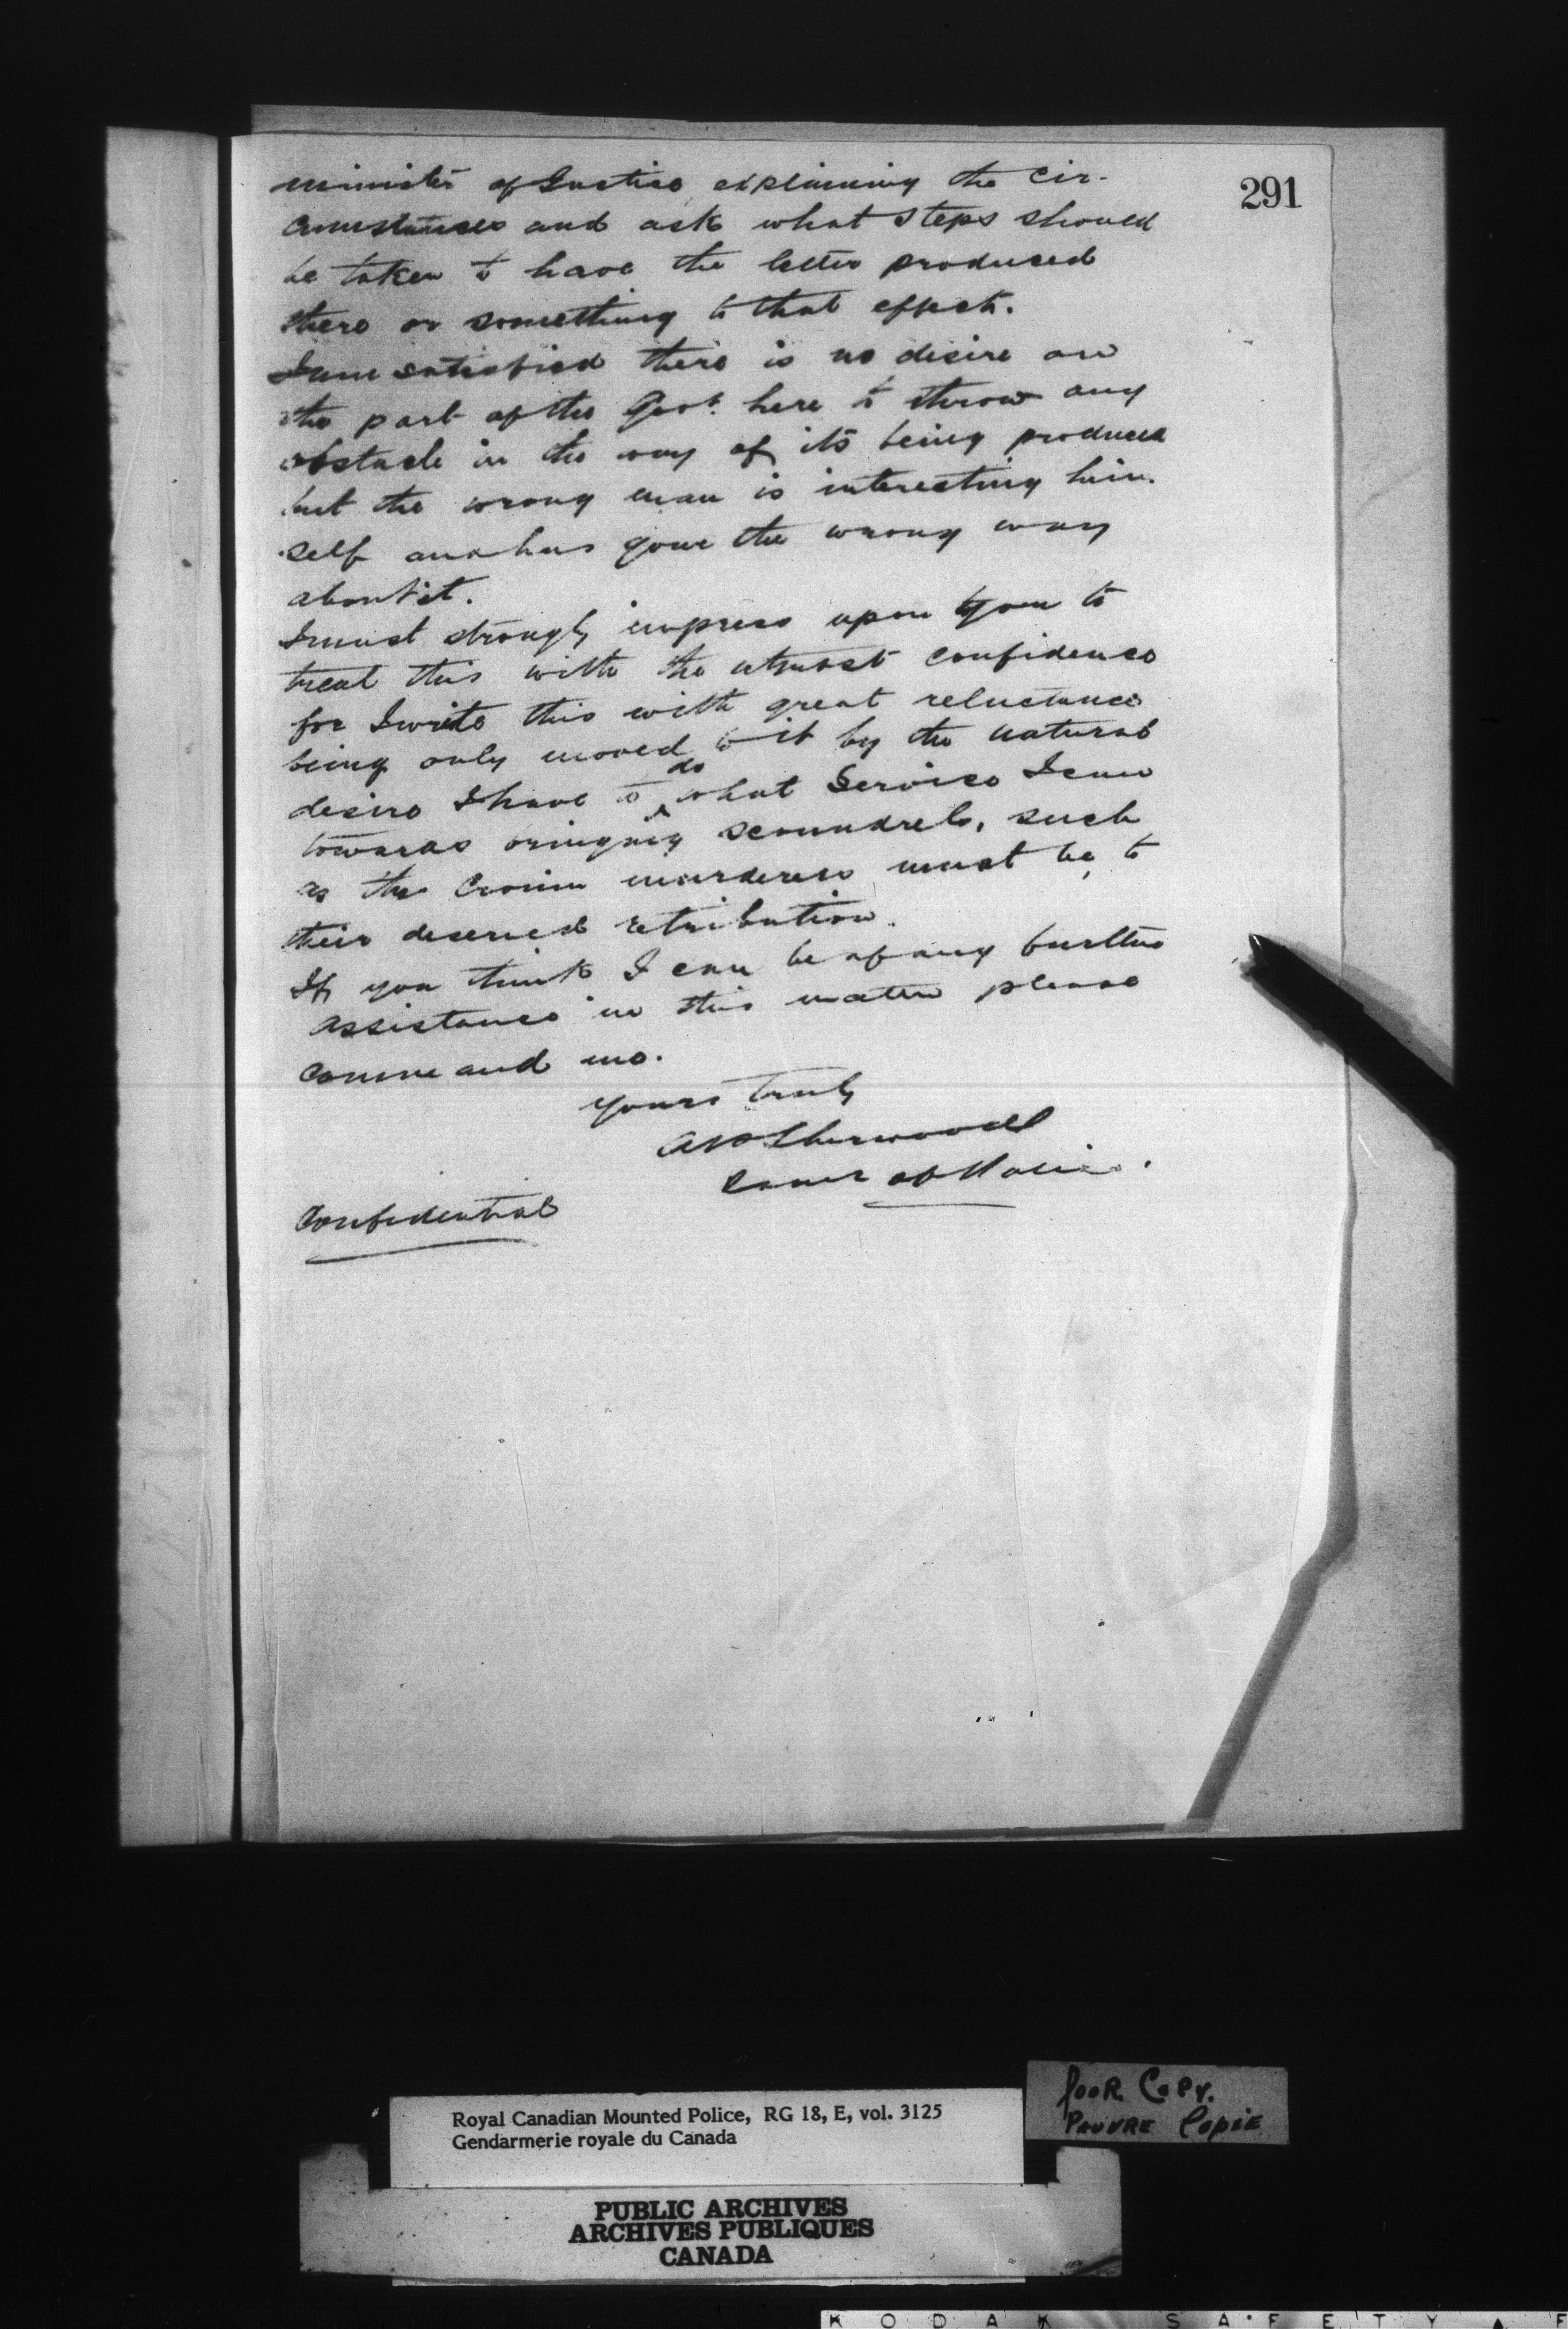 291
minister of Justice explaining the cir-
cumstances and ask what steps should
be taken to have the letter produced
there or something to that effect.
I am satisfied there is no desire on
the part of the Govt. here to throw any
obstacle in the way of its being produced
but the wrong man is interesting him-
self and has gone the wrong way
about it.
I must strongly impress upon you to
treat this with the utmost confidence
for I write this with great reluctance
being only moved to it by the natural
desire I have to do what service I can
towards bringing scoundrels, such
as the Cronin murderers must be, to
their deserved retribution.
If you think I can be of any further
assistance in this matter please
command me.
Yours truly
AP Sherwood
Comr of Police.
Confidential
Royal Canadian Mounted Police, RG 18, E, vol. 3125
Gendarmerie royale du Canada
POOR COPY.
PAUVRE COPIE
PUBLIC ARCHIVES
ARCHIVES PUBLIQUES
CANADA
KODAK SAFETY F